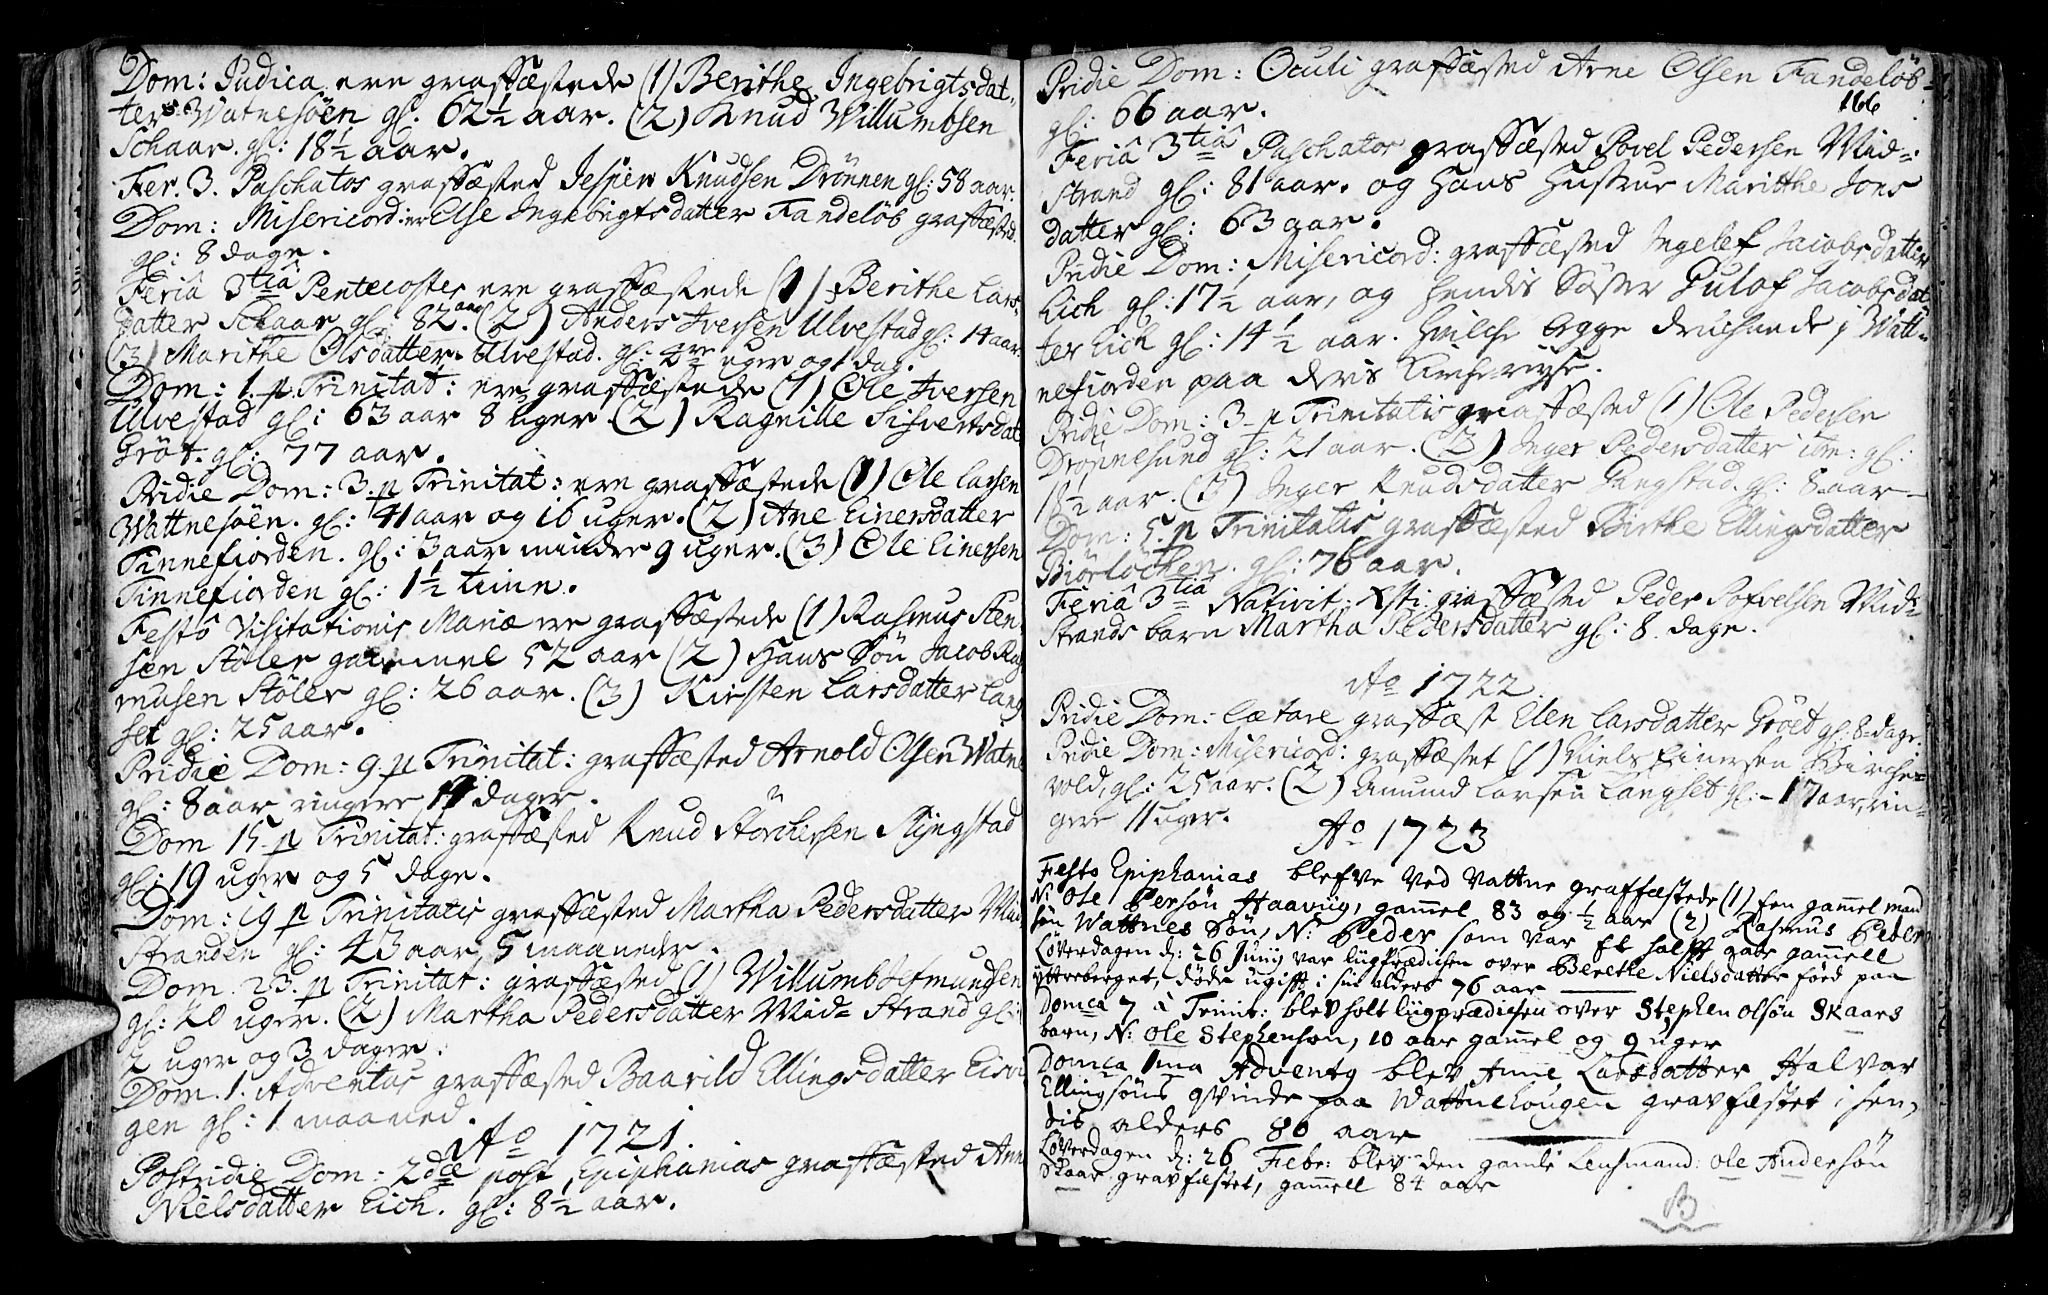 Dom: Judica ere graffæstede (1) Berithe Ingebrigtsdat-
ter Watnesöen gl: 62½ aar. (2) Knud Willumbsen
Schaar. gl: 18½ aar.
Fer. 3. Paschatos graffæsted Jesper Knudsen Drönnen gl: 58 aar.
Dom: Misericord: er Else Ingebrigtsdatter Fandelöb graffæsted.
gl: 8 dage.
Feriâ 3tiâ Pentecostes ere graffæstede (1) Berithe Lars-
datter Schaar gl: 82 aar (2) Anders Iversen Ulvestad gl: 14 aar.
(3) Marithe Olsdatter Ulvestad. gl: uger og 1 dag.
Dom: 1. p Trinitat: ere graffæstede (1) Ole Iversen
Ulvestad gl: 63 aar 8 uger (2) Ragnille Sifvertsdat
Gröt. gl: 77 aar.
Pridie Dom: 3. p Trinitat: ere graffæstede (1) Ole Larsen
Wattnesöen. gl: 41 aar og 16 uger. (2) Ane Einersdatter
Finnefiorden. gl: 3 aar mindre 9 uger. (3) Ole Einersen
Finnefiorden gl: 1½ time.
Festô Visitationis Mariæ ere graffæstede (1) Rasmus Sten-
sen Stöler gammel 52 aar (2) Hans Sön Jacob Ras
musen Stöler gl: 26 aar. (3) Kirsten Larsdatter Lang
set gl: 25 aar.
Pridie Dom: 9. p Trinitat: graffæsted Arnold Olsen Watne
gl: 8 aar ringere 19 dager.
Dom 15. p Trinitat: graffæsted Knud Störchersen Slyngstad
gl: 19 uger og 5 dage.
Dom: 19 p Trinitatis graffæsted Martha Pedersdatter Mid
Stranden gl: 43 aar, 5 maaneder.
Dom. 23. p Trinitat: graffæsted (1) Willumb Asmundsen
gl: 20 uger. (2) Martha Pedersdatter Mid= Strand gl:
2 uger og 3 dager.
Dom. 1. Adventus graffæsted Baarild Ellingsdatter Eisvi
gen gl: 1 maaned.
Ao 1721.
Postridie Dom: 2dæ post Epiphanias graffæsted Ann
Nielsdatter Eich. gl: 8½ aar.
Pridie Dom: Oculi graffæsted Arne Olsen Fandelöb-
166
gl: 66 aar.
Feriâ 3tiâ Paschatos graffæsted Povel Pedersen Mid-
Strand gl: 81 aar. og Hans Hustrue Maritthe Jons
datter gl: 63 aar.
Pridie Dom: Misericord: graffæsted Ingelef Jacobsdatter
Eich gl: 17½ aar, og hendis Söster Gulof Jacobsdat
ter Eich gl: 14½ aar. hvilche begge druchnede j Watt-
nefiorden paa deris Kircherejse.
Pridie Dom: 3. p Trinitatis graffæsted (1) Ole Pedersen
Drönnesund gl: 21 aar. (2) Inger Pedersdatter item: gl:
18½ aar. (3) Inger Knudsdatter Gangstad. gl: 8 aar
Dom: 5. p Trinitatis graffæsted Birthe Ellingsdatter
Biörlöchen. gl: 76 aar.
Feriâ 3tiâ Nativit: Xsti: graffæsted Peder Pofvelsen Mid-
Strands barn Martha Pedersdatter gl: 8. dage.
Ao 1722.
Pridie Dom: Lætare graffæst Elen Larsdatter Gröet gl: 8 dage.
Pridie Dom: Misericord: graffæstet (1) Niels Einersen Birche-
vold, gl: 25 aar. (2) Amund Larsen Langset gl: 17 aar, rin-
gere 11 uger.
Ao 1723
Festo Epiphanias blefve ved Vattne graffæstede (1) Een gamel mand
N: Ole Persøn Haavug, gamel 83 og ½ aar (2) Rasmus Peder
søn Wattnes Søn, N: Peder som var Et halft gaar gamell
Løverdagen d: 26 Junij var liigprædichen over Berethe Nielsdatter førd paa
ytterberget, døde ugift i sin alders 76 aar
Domca 7 à Trinit: blev holt liigprædichen over Stephen Olsøn Skaars
barn, N: Ole Stephensøn, 10 aar gamel og 9 uger
Domca 1ma Adventg blev Anne Larsdatter Halvar
Ellingsøns qvinde paa Wattnehougen gravfæstet i hen-
dis alders 86 aar
Løverdagen d: 26 Febr: blev den gamle Lensmand: Ole Andersøn
Skaar gravfæstet, gamell 84 aar
B